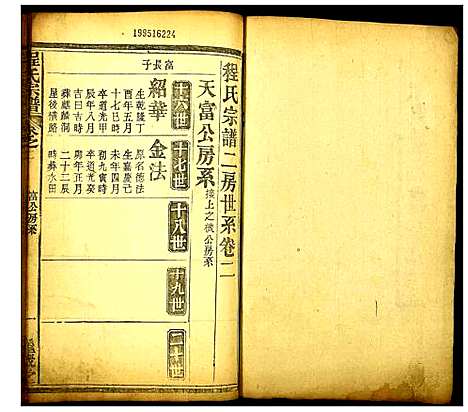 199516224
程氏宗譜二房世系卷二
天富公房系
接上之機公房系
十六世
十七世
十八世
十九世
二十世
富長子
紹華
生乾隆丁
酉年五月
十七巳時
卒道光庚
辰年八月
吉日吉時
葬麒麟洞
屋後橫路
金法
原名德法
生嘉慶己
未年四月
初九寅時
卒道光癸
卯年正月
二十三辰
時葬水田
程氏宗譜
富公房系